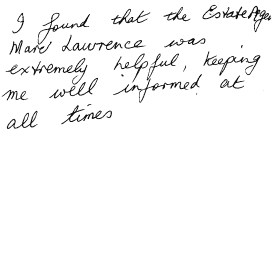 I found that the Estate Agen
Marc Lawrence was
extremely helpful, keeping
me well informed at
all times